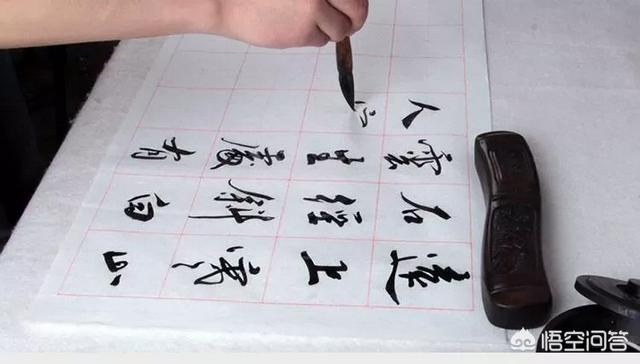 遠上寒山
石徑斜白
雲生處有
人
悟空问答